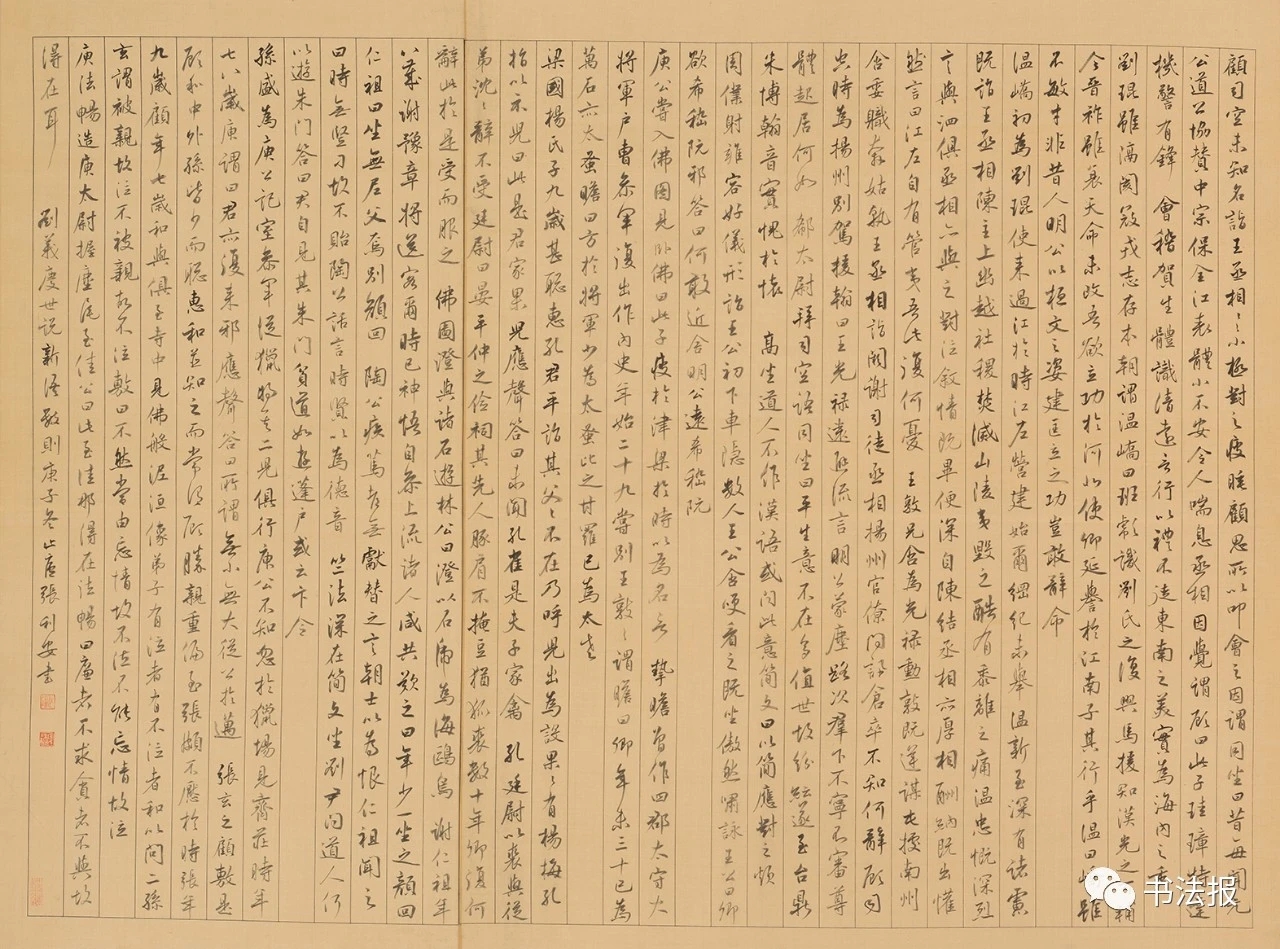 顧司空未知名詣王丞相〃小極對之疲睡顧思所以叩會之因謂同坐曰昔每聞元
公道公協贊中宗保全江表體小不安令人喘息丞相因覺謂顧曰此子珪璋特達
機警有鋒　會稽賀生體識清遠言行以禮不徒東南之美實為海內之秀
劉琨雖隔閡寇戎志存本朝謂溫嶠曰班彪識劉氏之復興馬援知漢光之可輔
今晉祚雖衰天命未改吾欲立功於河北使卿延譽於江南子其行乎溫曰嶠雖
不敏才非昔人明公以桓文之姿建匡立之功豈敢辭命
溫嶠初為劉琨使來過江於時江左營建始爾綱紀未舉溫新至深有諸慮
既詣王丞相陳主上幽越社稷焚滅山陵夷毀之酷有黍離之痛溫忠慨深烈
言與泗俱丞相亦與之對泣敘情既畢便深自陳結丞相亦厚相酬納既出懽
然言曰江左自有管夷吾此復何憂　王敦兄含為光祿勳敦既逆謀屯據南州
含委職奔姑孰王丞相詣闕謝司徒丞相揚州官僚問訊倉卒不知何辭顧司
空時為揚州別駕援翰曰王光祿遠避流言明公蒙塵路次羣下不寧不審尊
體起居何如　郗太尉拜司空語同坐曰平生意不在多值世故紛紜遂至台鼎
朱博翰音實愧於懷　高坐道人不作漢語或問此意簡文曰以簡應對之煩
周僕射雍容好儀形詣王公初下車隱數人王公含笑看之既坐傲然嘯詠王公曰卿
欲希嵇阮邪答曰何敢近舍明公遠希嵇阮
庾公嘗入佛圖見臥佛曰此子疲於津梁於時以為名言　摯瞻曾作四郡太守大
將軍戶曹參軍復出作內史年始二十九嘗別王敦〃謂瞻曰卿年未三十已為
萬石亦太蚤瞻曰方於將軍少為太蚤比之甘羅已為太老
梁國楊氏子九歲甚聰惠孔君平詣其父〃不在乃呼兒出為設果〃有楊梅孔
指以示兒曰此是君家果兒應聲答曰未聞孔雀是夫子家禽　孔廷尉以裘與從
弟沈〃辭不受廷尉曰晏平仲之儉祠其先人豚肩不掩豆猶狐裘數十年卿復何
辭此於是受而服之　佛圖澄與諸石遊林公曰澄以石虎為海鷗鳥　謝仁祖年
八歲謝豫章將送客爾時已神悟自參上流諸人咸共歎之曰年少一坐之顏回
仁祖曰坐無尼父焉別顏回　陶公疾篤都無獻替之言朝士以為恨仁祖聞之
曰時無豎刁故不貽陶公話言時賢以為德音　竺法深在簡文坐劉尹問道人何
以遊朱門答曰君自見其朱門貧道如遊蓬戶或云卞令
孫盛為庾公記室參軍從獵將其二兒俱行庾公不知忽於獵場見齊莊時年
七八歲庾謂曰君亦復來邪應聲答曰所謂無小無大從公於邁　張玄之顧敷是
顧和中外孫皆少而聰惠和並知之而常謂顧勝親重偏至張頗不懕於時張年
九歲顧年七歲和與俱至寺中見佛般泥洹像弟子有泣者有不泣者和以問二孫
玄謂被親故泣不被親故不泣敷曰不然當由忘情故不泣不能忘情故泣
庾法暢造庾太尉握麈尾至佳公曰此至佳那得在法暢曰廉者不求貪者不與故
得在耳
劉義慶世說新語數則庚子冬張利安書
书法报